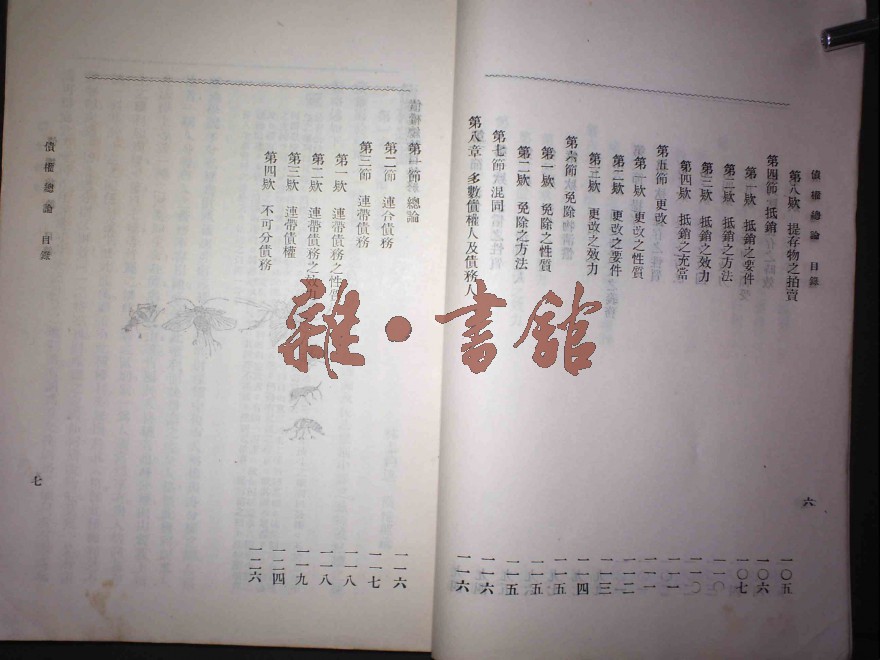 債權總論 目錄
第八欵 提存物之拍賣 一〇五
第四節 抵銷 一〇六
第一欵 抵銷之要件 一〇七
第二欵 抵銷之方法
第三欵 抵銷之效力
第四欵 抵銷之充當
第五節 更改
第一欵 更改之性質
第二欵 更改之要件 一一二
第三欵 更改之效力 一一三
第六節 免除 一一四
第一欵 免除之性質 一一五
第二欵 免除之方法 一一五
第七節 混同
第八章 多數債權人及債務人 一一六
六
第一節 總論 一一六
第二節 連合債務 一一七
第三節 連帶債務 一一八
第一欵 連帶債務之性質 一一八
第二欵 連帶債務之效力 一一九
第三欵 連帶債權 一二四
第四欵 不可分債務 一二六
債權總論 目錄
七
雜·書館